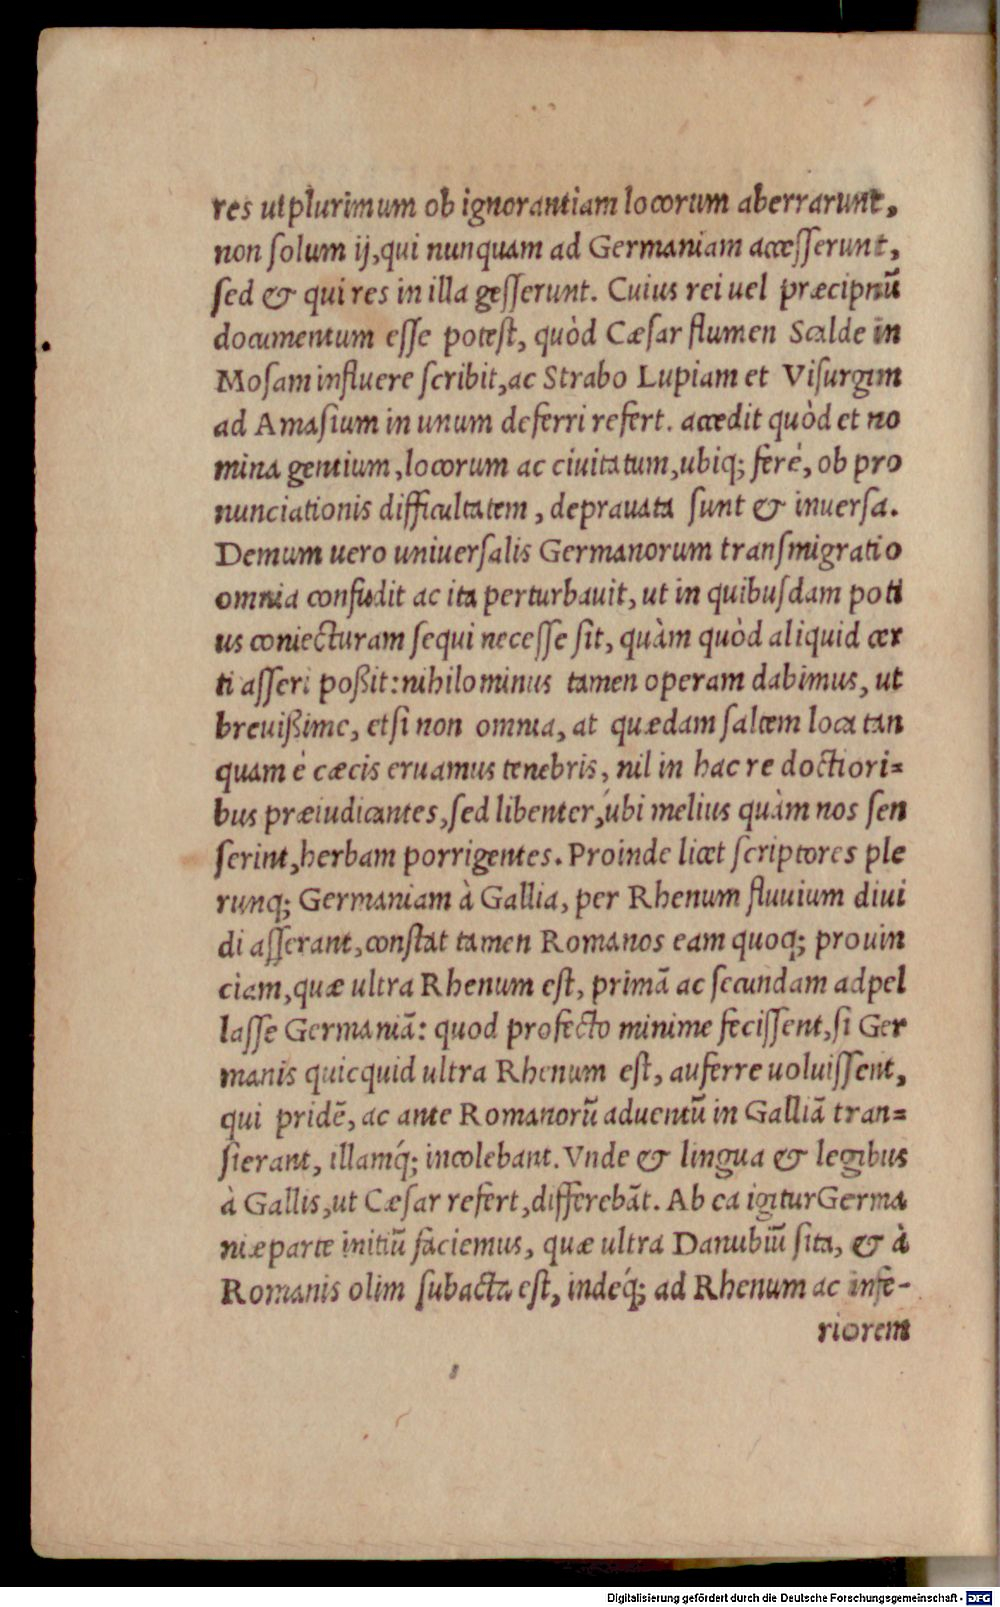 res ut plurimum ob ignorantiam locorum aberrarunt,
non ſolum ij, qui nunquam ad Germaniam acceſſerunt,
ſed & qui res in illa geſſerunt. Cuius rei uel præcipuū
documentum eſſe poteſt, quòd Cæſar flumen Scalde in
Moſam influere ſcribit, ac Strabo Lupiam et Viſurgim
ad Amaſium in unum deferri refert. accedit quòd et no
mina gentium, locorum ac ciuitatum, ubiq; ferè, ob pro
nunciationis difficultatem, deprauata ſunt & inuerſa.
Demum uero uniuerſalis Germanorum tranſmigratio
omnia confudit ac ita perturbauit, ut in quibuſdam poti
us coniecturam ſequi neceſſe ſit, quàm quòd aliquid cer
ti aſſeri poßit: nihilominus tamen operam dabimus, ut
breuißime, etſi non omnia, at quædam ſaltem loca tan
quam è cæcis eruamus tenebris, nil in hac re doctiori=
bus præiudicantes, ſed libenter, ubi melius quàm nos ſen
ſerint, herbam porrigentes. Proinde licet ſcriptores ple
runq; Germaniam à Gallia, per Rhenum fluuium diui
di aſſerant, conſtat tamen Romanos eam quoq; prouin
ciam, quæ ultra Rhenum eſt, primā ac ſecundam adpel
laſſe Germaniā: quod profecto minime feciſſent, ſi Ger
manis quicquid ultra Rhenum eſt, auferre uoluiſſent,
qui pridē, ac ante Romanorū aduentū in Galliā tran=
ſierant, illamq́; incolebant. Vnde & lingua & legibus
à Gallis, ut Cæſar refert, differebāt. Ab ea igitur Germa
niæ parte initiū faciemus, quæ ultra Danubiū ſita, & à
Romanis olim ſubacta eſt, indeq́; ad Rhenum ac infe-
riorem
Digitalisierung gefördert durch die Deutsche Forschungsgemeinschaft - DFG